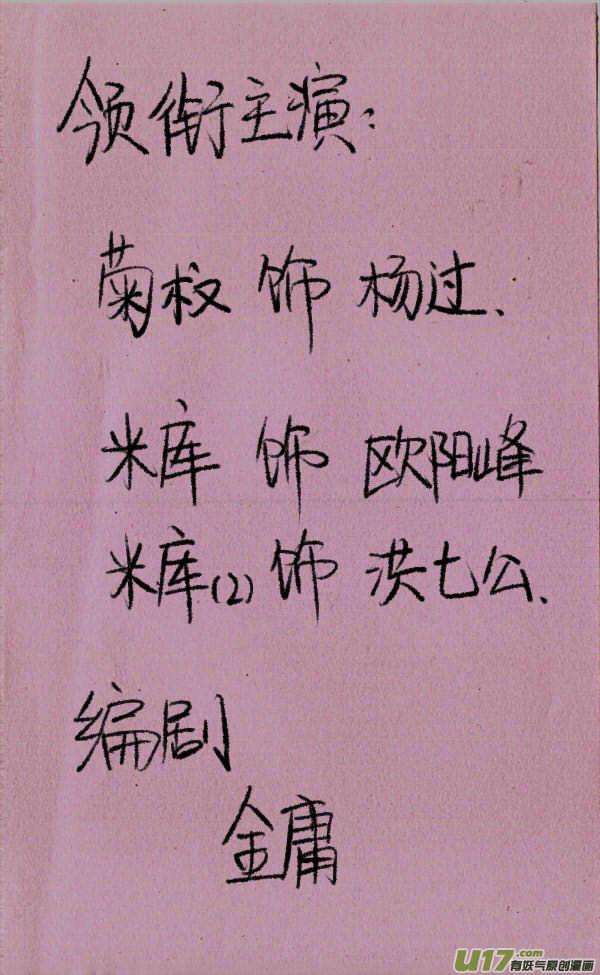 领衔主演:
菊叔 饰 杨过、
米库 饰 欧阳峰
米库(2) 饰 洪七公、
编剧
金庸
U17.com
有妖气原创漫画